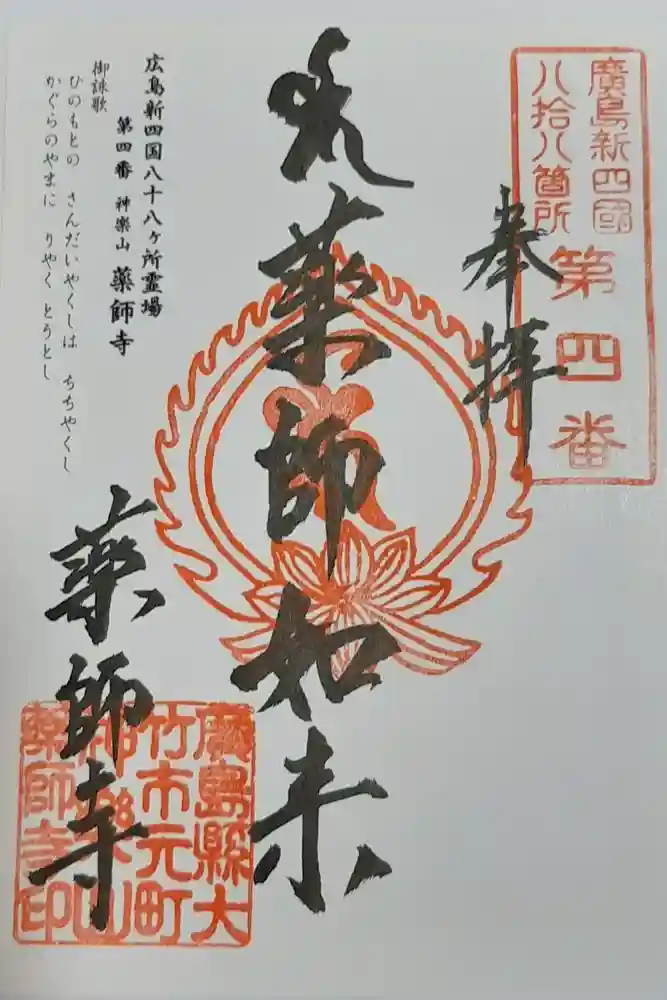 廣島新四國
八拾八箇所
第四番
奉拝
薬師如来
広島新四国八十八ヶ所霊場
第四番 神楽山 薬師寺
御詠歌
ひのもとの さんだいやくしは ちちやくし
かぐらのやまに りやく とうとし
薬師寺
廣島縣大
竹市元町
神樂山
薬師寺印